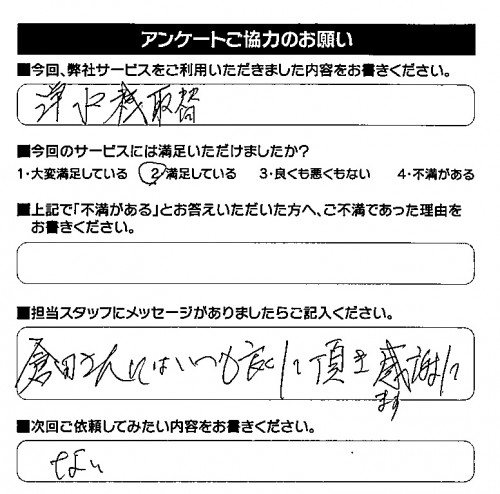 アンケートご協力のお願い
■今回、弊社サービスをご利用いただきました内容をお書きください。
浄水栓取替
■今回のサービスには満足いただけましたか?
1・大変満足している 2・満足している 3・良くも悪くもない 4・不満がある
■上記で「不満がある」とお答えいただいた方へ、ご不満であった理由を
お書きください。
■担当スタッフにメッセージがありましたらご記入ください。
倉田さんにはいつも良くして頂き感謝して
ます
■次回ご依頼してみたい内容をお書きください。
ない